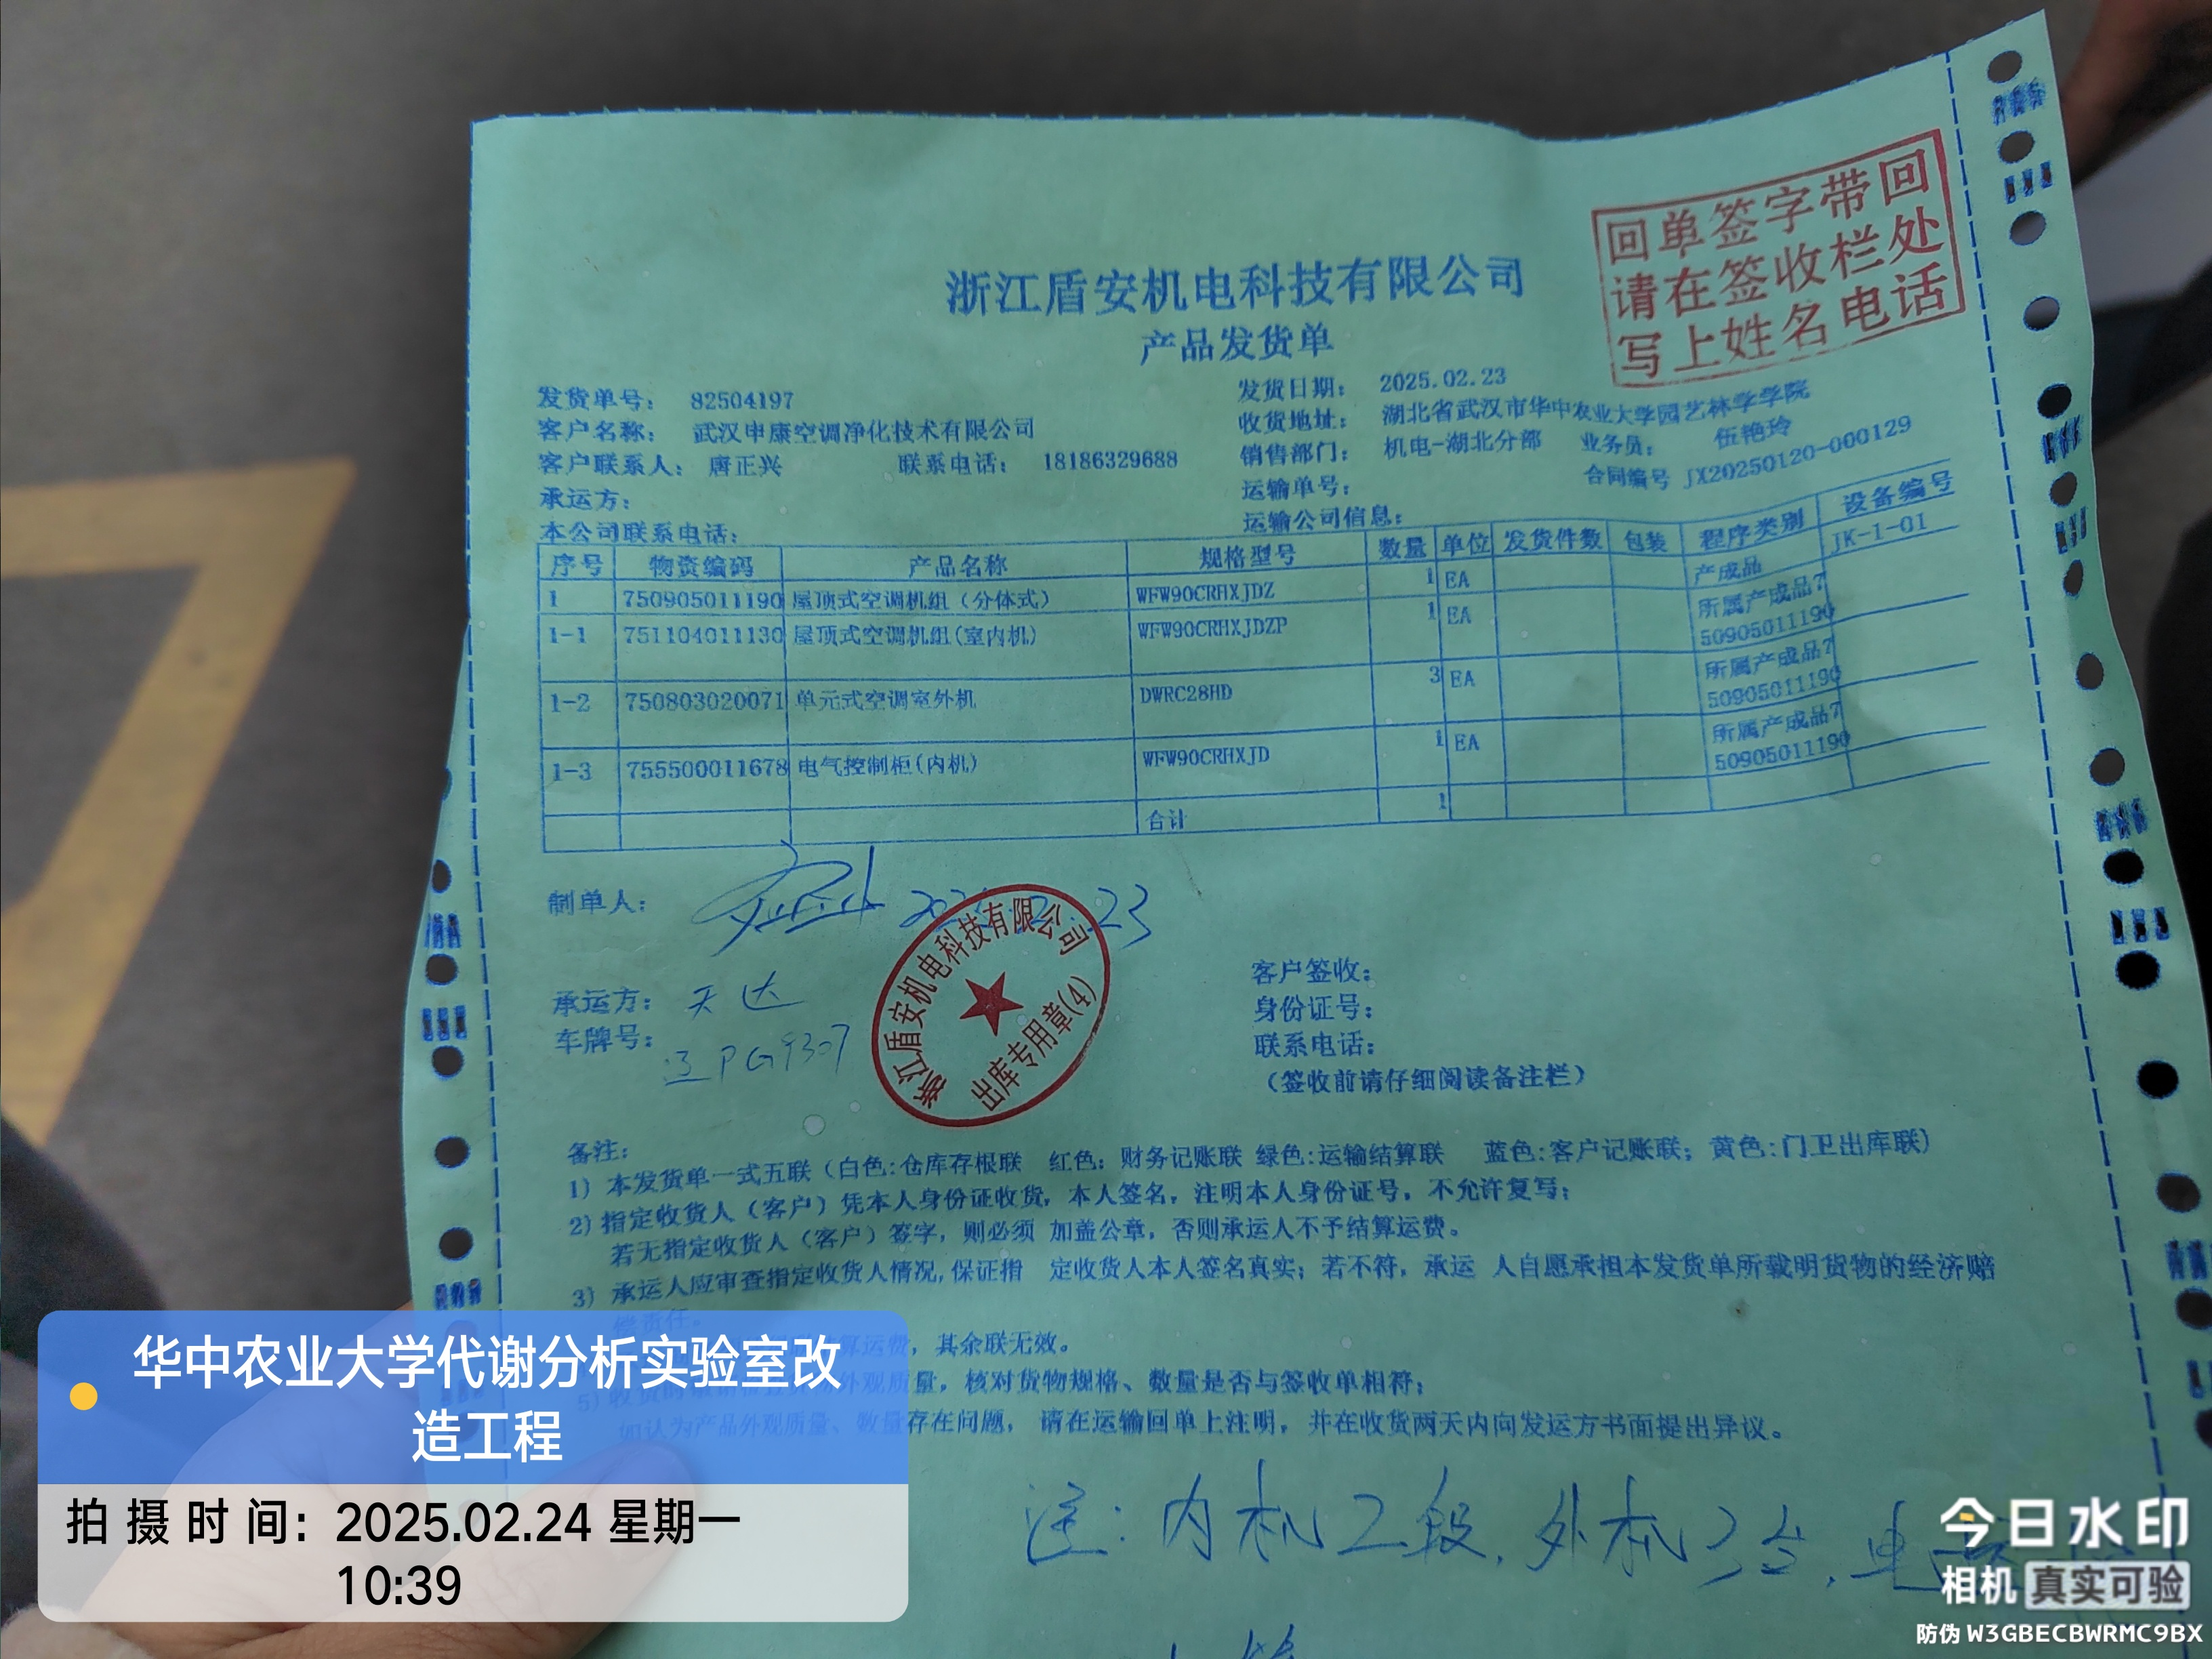 回单签字带回
请在签收栏处
写上姓名电话
浙江盾安机电科技有限公司
产品发货单
发货单号： 82504197 发货日期： 2025.02.23
客户名称： 武汉申康空调净化技术有限公司 收货地址： 湖北省武汉市华中农业大学园艺林学学院
客户联系人： 唐正兴 联系电话： 18186329688 销售部门： 机电-湖北分部 业务员： 伍艳玲
承运方： 运输单号： 合同编号 JX20250120-000129
本公司联系电话： 运输公司信息：
序号 物资编码 产品名称 规格型号 数量 单位 发货件数 包装 程序类别 设备编号
1 750905011190 屋顶式空调机组（分体式） WFW90CRHXJDZ 1 EA 产成品 JK-1-01
1-1 751104011130 屋顶式空调机组(室内机) WFW90CRHXJDZP 1 EA 所属产成品7
50905011190
1-2 750803020071 单元式空调室外机 DWRC28HD 3 EA 所属产成品7
50905011190
1-3 755500011678 电气控制柜(内机) WFW90CRHXJD 1 EA 所属产成品7
50905011190
合计 1
制单人： 23
浙江盾安机电科技有限公司
出库专用章(4)
承运方： 天达
车牌号： PG9307
客户签收：
身份证号：
联系电话：
（签收前请仔细阅读备注栏）
备注：
1) 本发货单一式五联（白色:仓库存根联 红色：财务记账联 绿色:运输结算联 蓝色:客户记账联；黄色:门卫出库联)
2) 指定收货人（客户）凭本人身份证收货，本人签名，注明本人身份证号，不允许复写；
若无指定收货人（客户）签字，则必须 加盖公章，否则承运人不予结算运费。
3) 承运人应审查指定收货人情况,保证指 定收货人本人签名真实；若不符，承运 人自愿承担本发货单所载明货物的经济赔
偿责任。
算运费，其余联无效。
5) 外观质量，核对货物规格、数量是否与签收单相符；
如认为产品外观质量、数量存在问题， 请在运输回单上注明，并在收货两天内向发运方书面提出异议。
注：内机2段，外机3台，电
华中农业大学代谢分析实验室改
造工程
拍摄时间：2025.02.24 星期一
10:39
今日水印
相机 真实可验
防伪 W3GBECBWRMC9BX